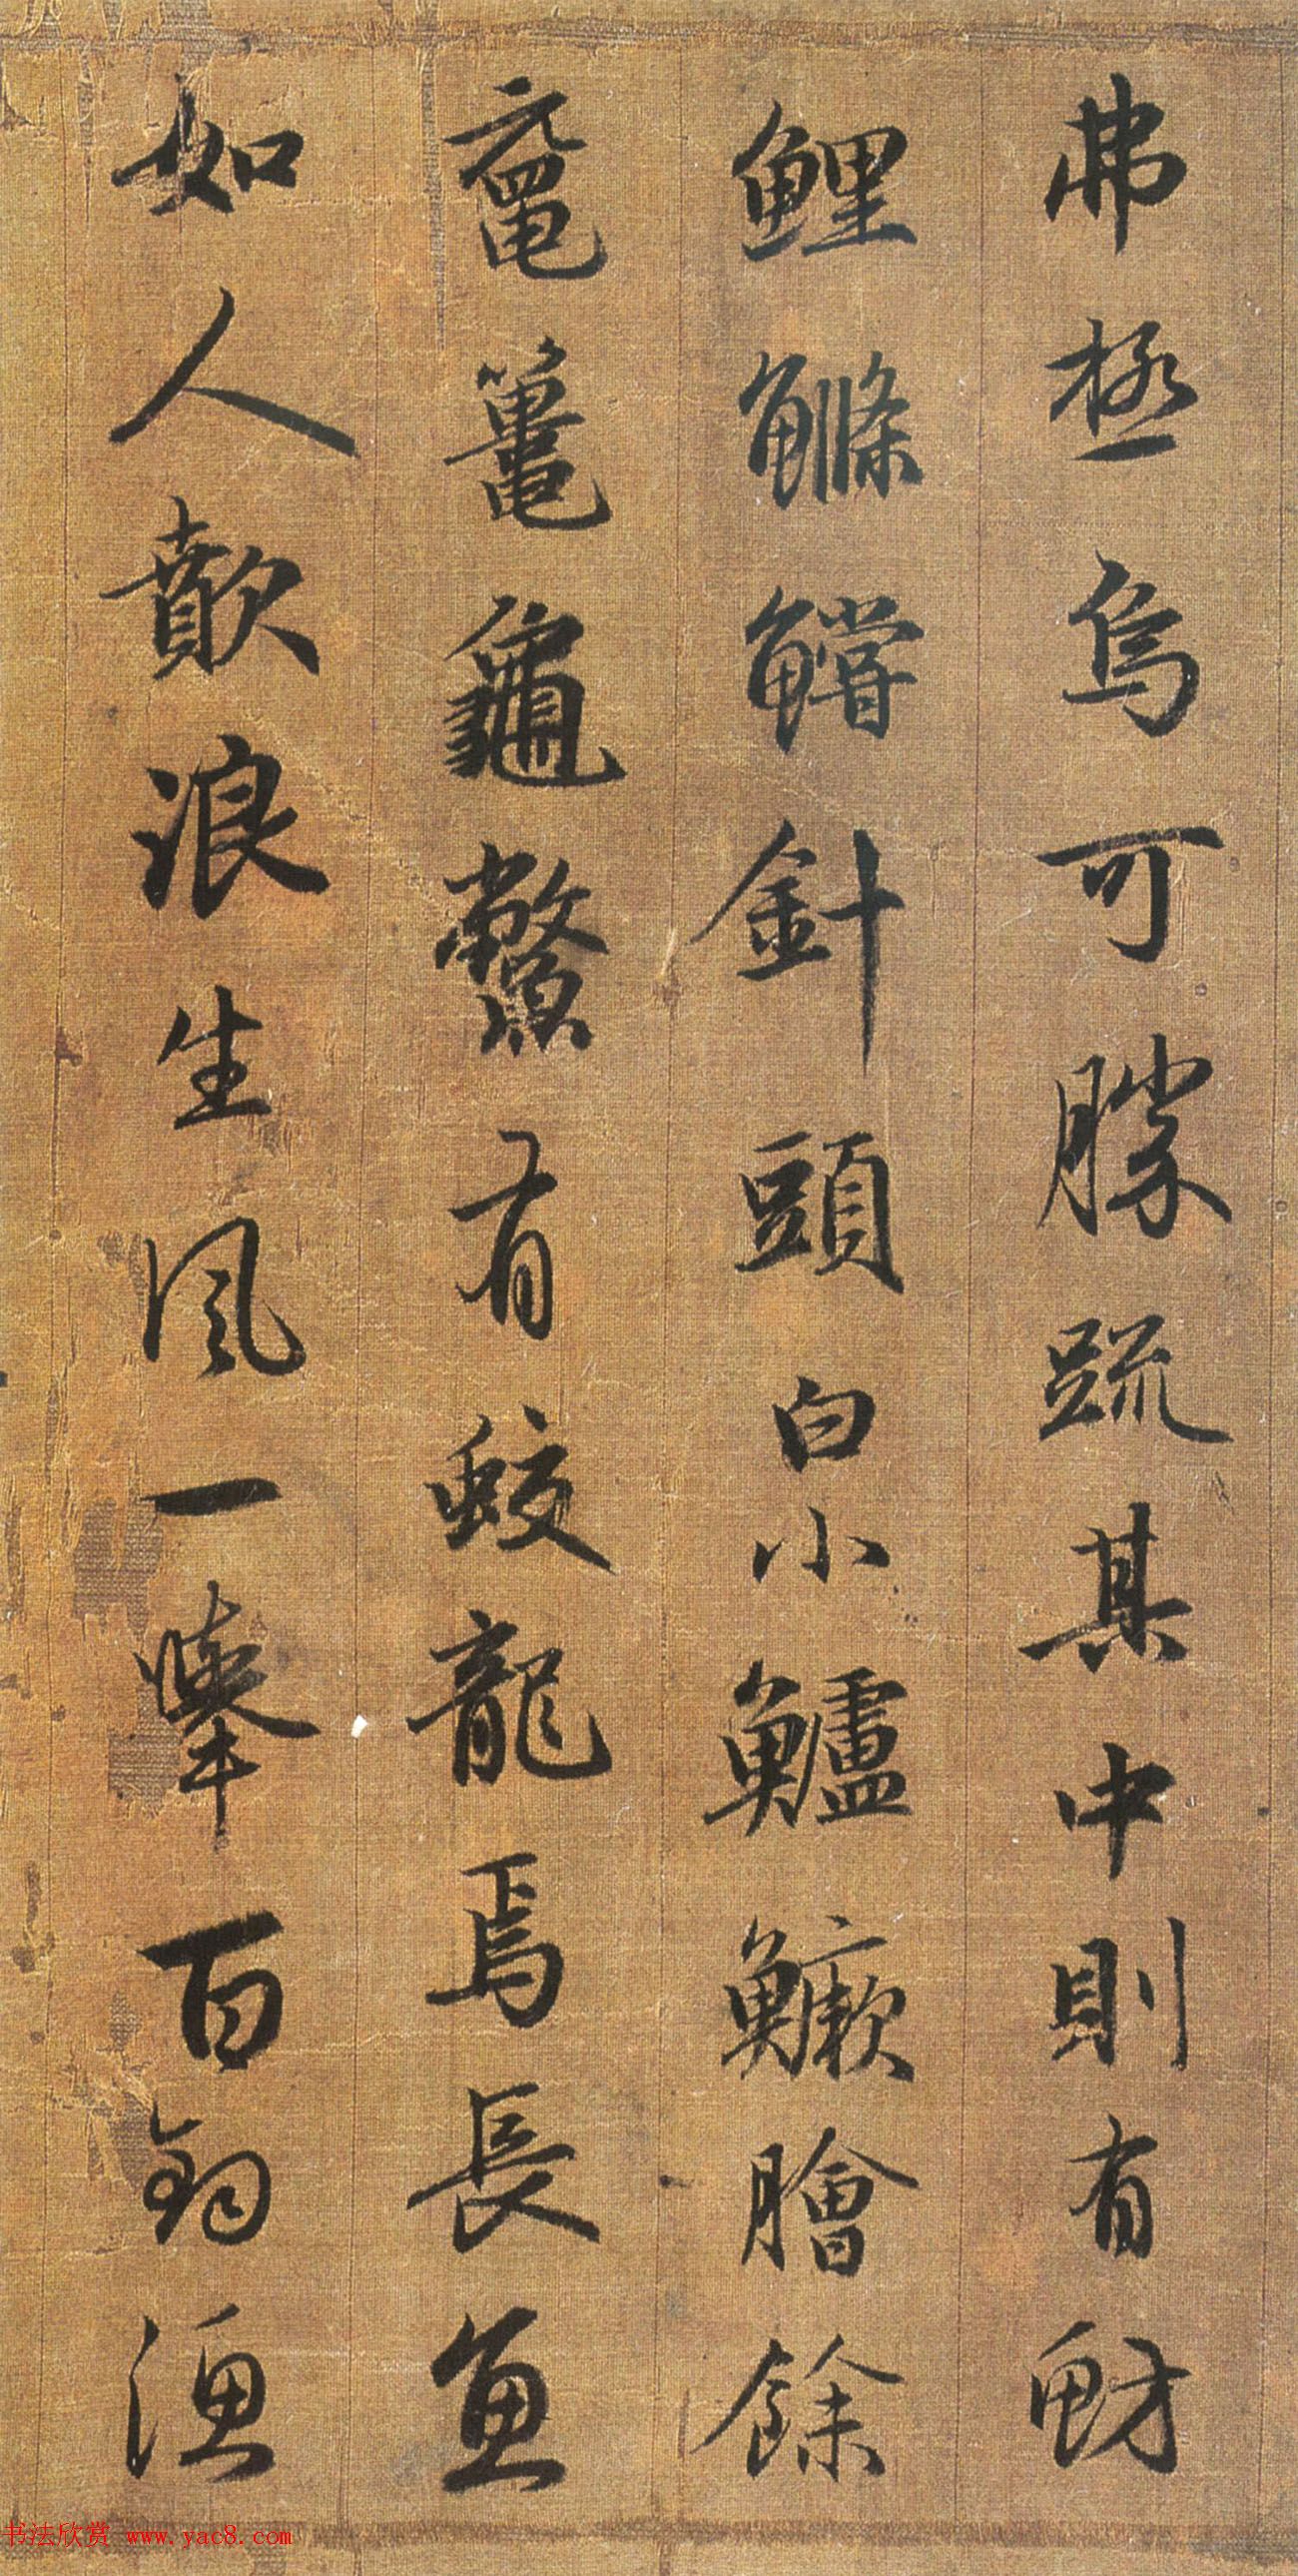 弗極烏可勝疏其中則有魴
鯉鰷鱨針頭白小鱸鱖膾餘
黿鼉龜鱉有蛟龍焉長魚
如人歕浪生風一舉百鈞漁
书法欣赏 www.yac8.com